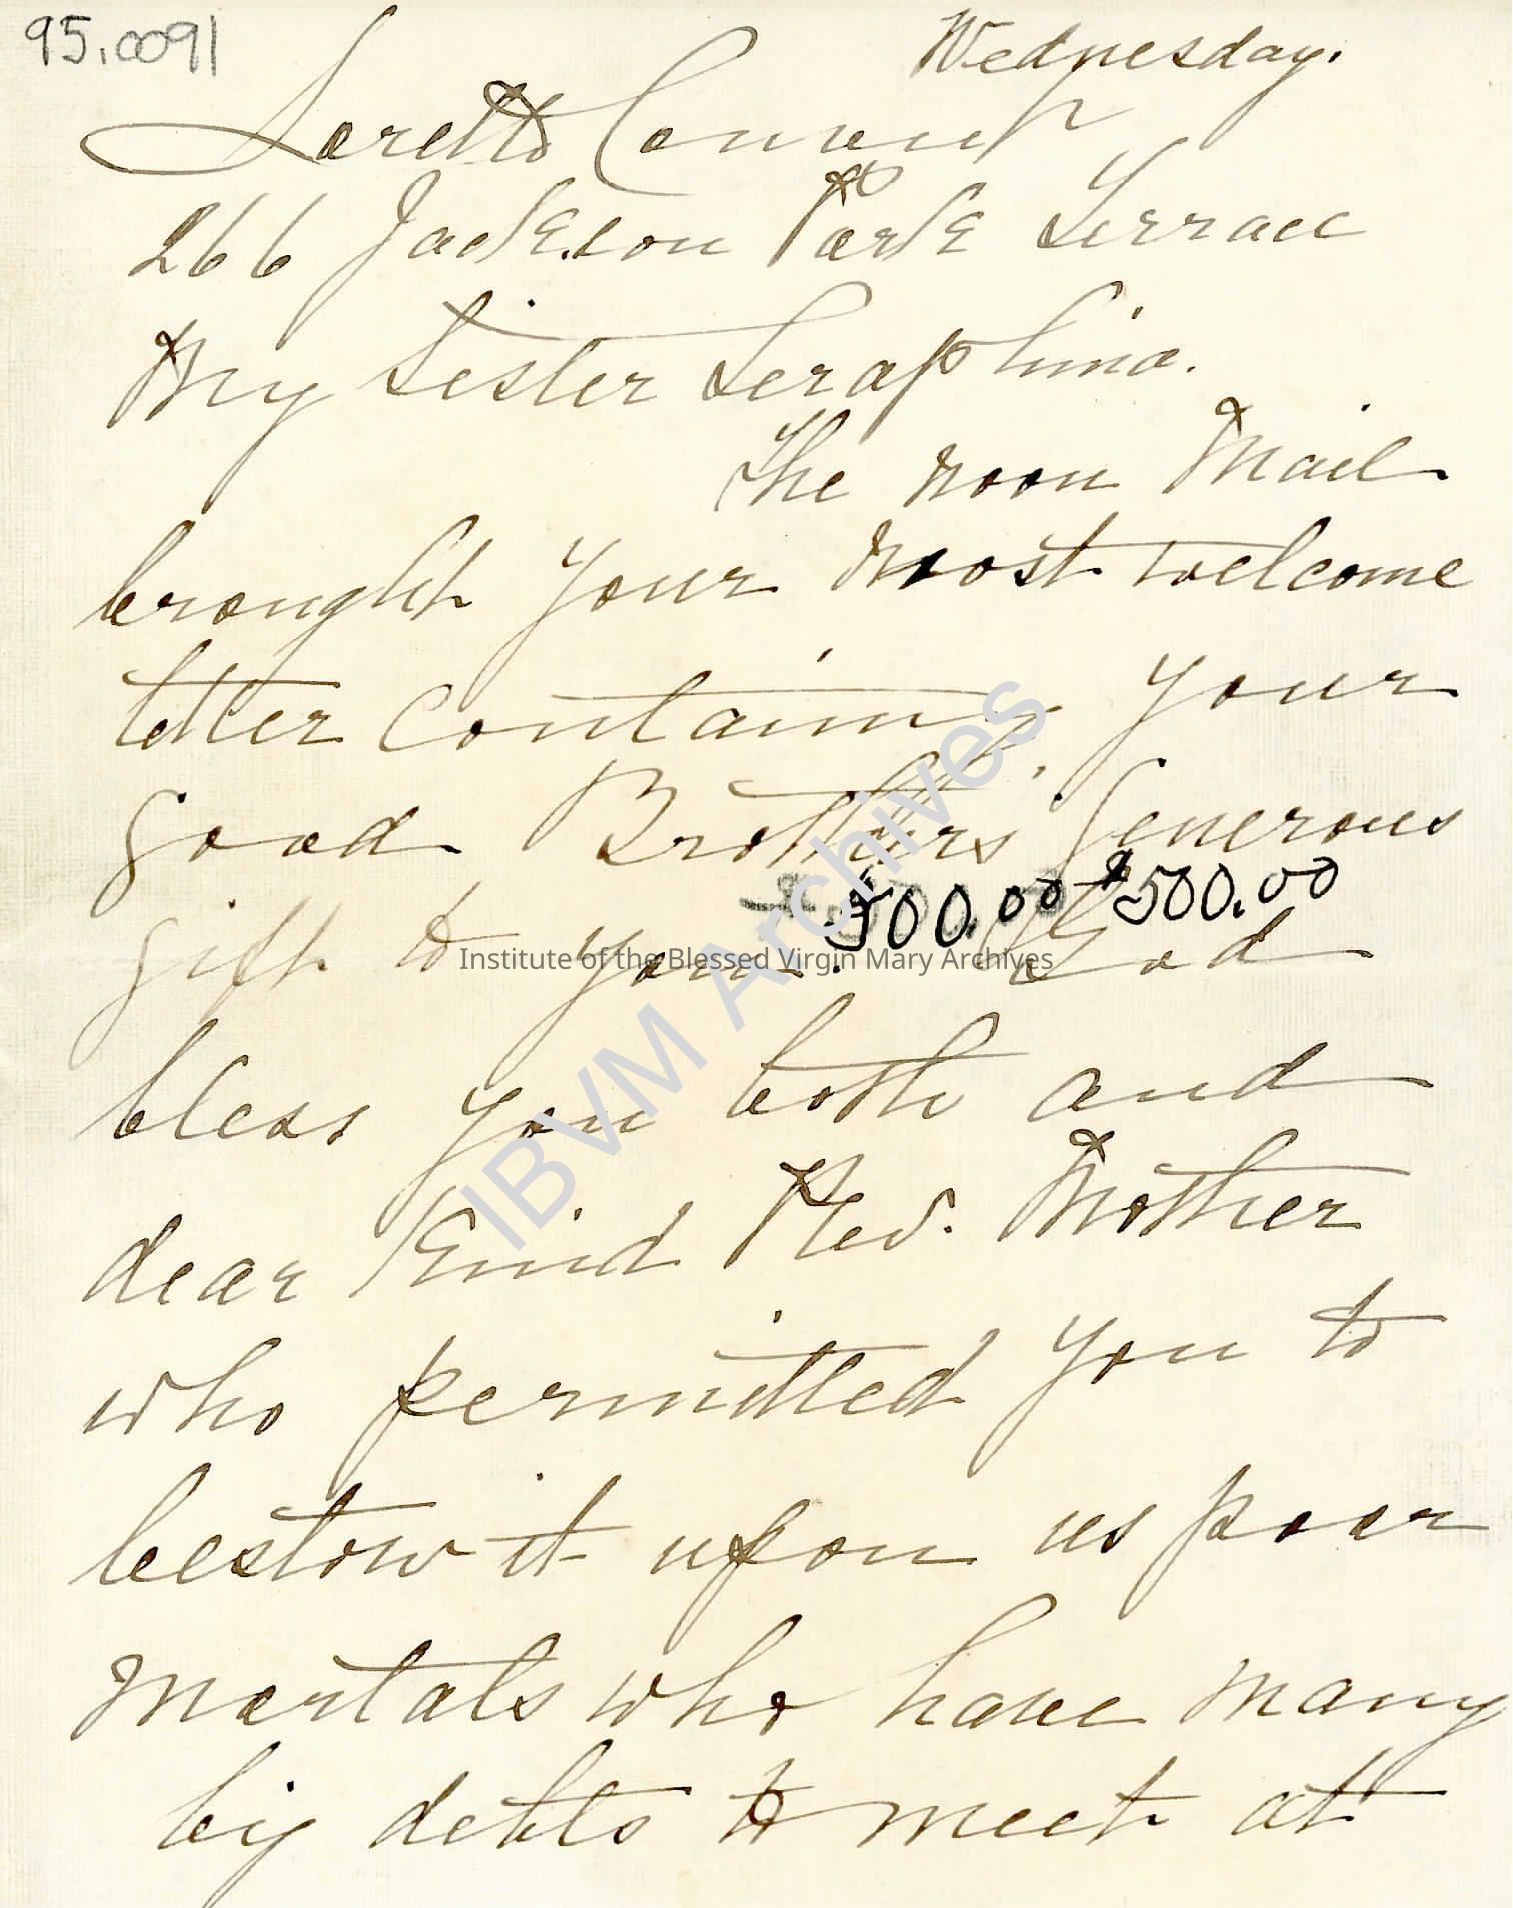 95.0091
Wednesday.
Loretto Convent
266 Jackson Park Terrace
My Sister Seraphina.
The noon Mail
brought your most welcome
letter containing your
good Brothers' generous
$500.00 $500.00
gift to you. God
bless you both and
dear Kind Rev. Mother
who permitted you to
bestow it upon us poor
mortals who have many
big debts to meet at
Institute of the Blessed Virgin Mary Archives
IBVM Archives